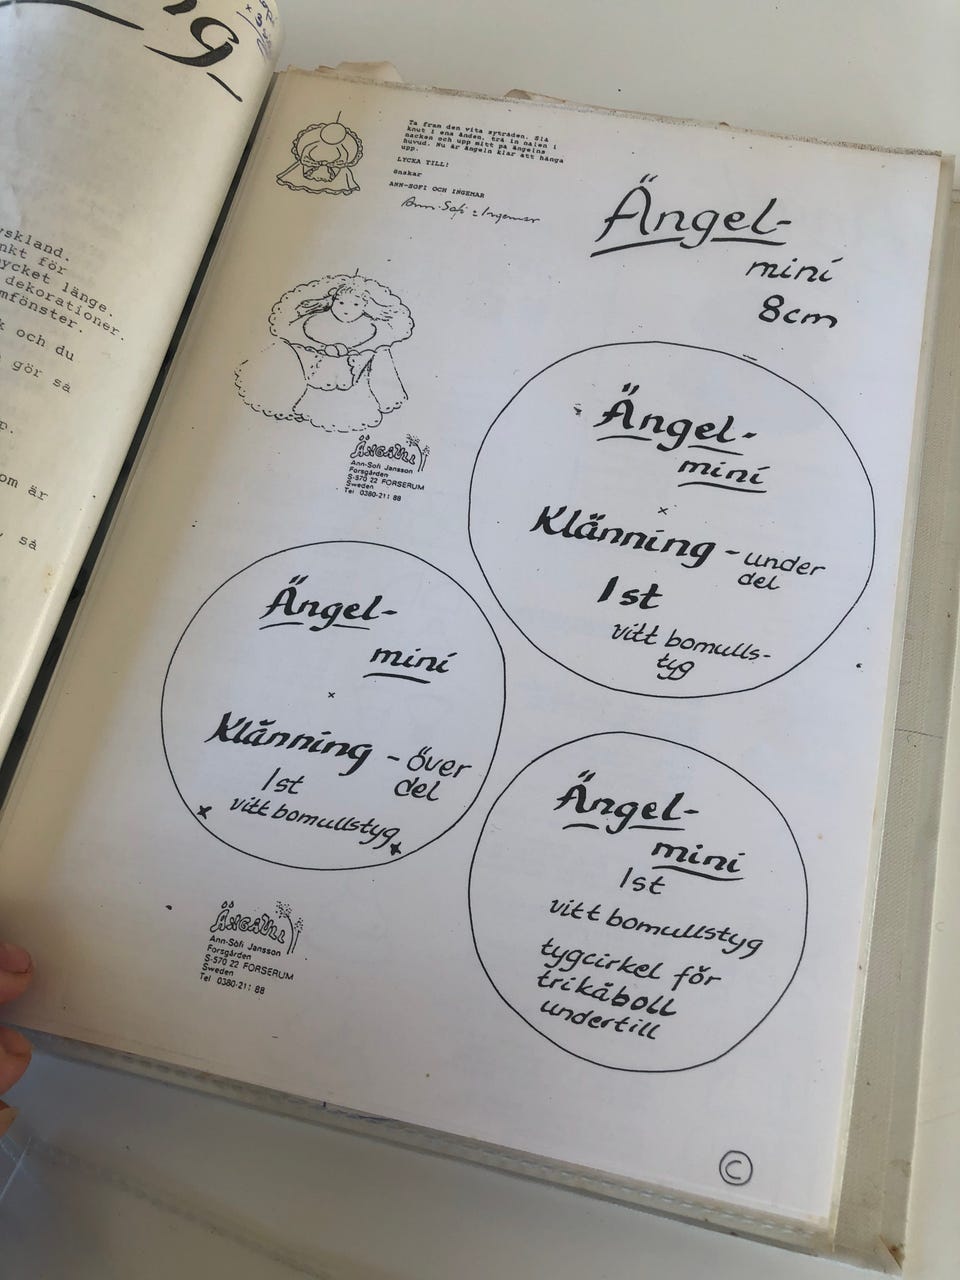 skland.
nkt för
ycket länge.
dekorationer.
mfönster.
k och du
gör så
p.
om är
, så
Ta fram den vita sytråden. Slå
knut i ena änden, trä in nålen i
nacken och upp mitt på ängelns
huvud. Nu är ängeln klar att hänga
upp.
LYCKA TILL!
önskar
ANN-SOFI OCH INGEMAR
Ann-Sofi & Ingemar
Ängel-
mini
8cm
ÄNGAULL
Ann-Sofi Jansson
Forsgården
S-570 22 FORSERUM
Sweden
Tel 0380-211 88
Ängel-
mini
x
Klänning - under
del
1st
vitt bomulls-
tyg
Ängel-
mini
x
Klänning - över
del
1st
vitt bomullstyg
x x
Ängel-
mini
1st
vitt bomullstyg
tygcirkel för
trikåboll
undertill
ÄNGAULL
Ann-Sofi Jansson
Forsgården
S-570 22 FORSERUM
Sweden
Tel 0380-211 88
©